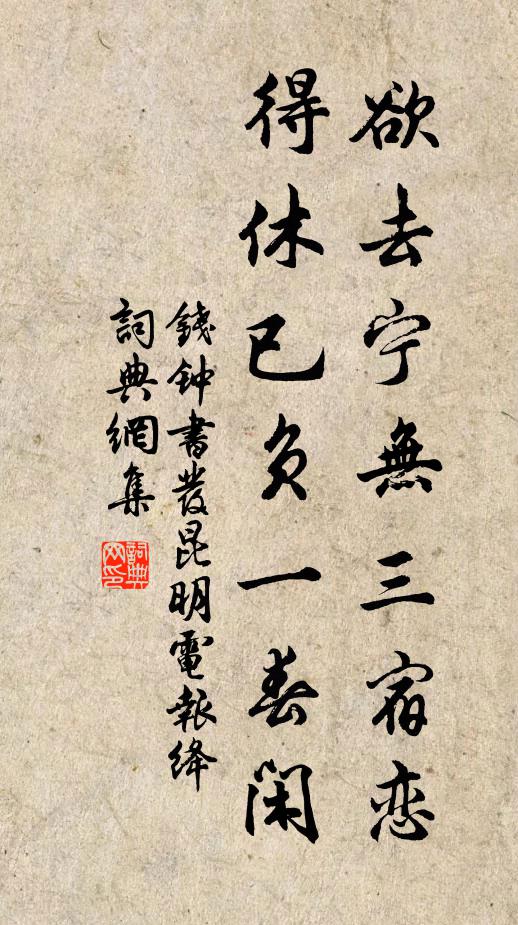 欲去宁無三宿恋
得休已负一春閑
錢钟書發昆明電報绛
詞典網集
詞典
网印